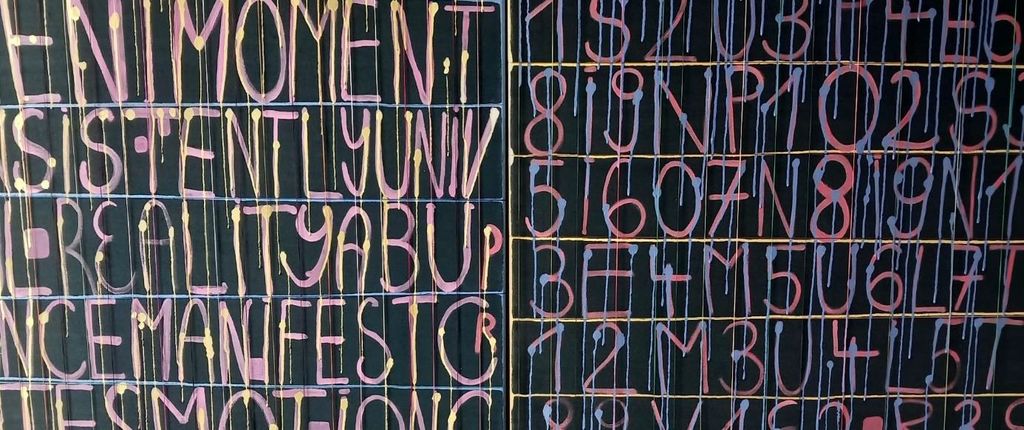 ENTMOMENT
SiSTENTLYUNiV
L REALiTYABUP
NCEMANIFESTCR
TESMOTiONC
1S2U3F4E6
8iU9NP1O2S3
5i6O7N8i9N1
3E4M5U6L7T
12M3U4L5T